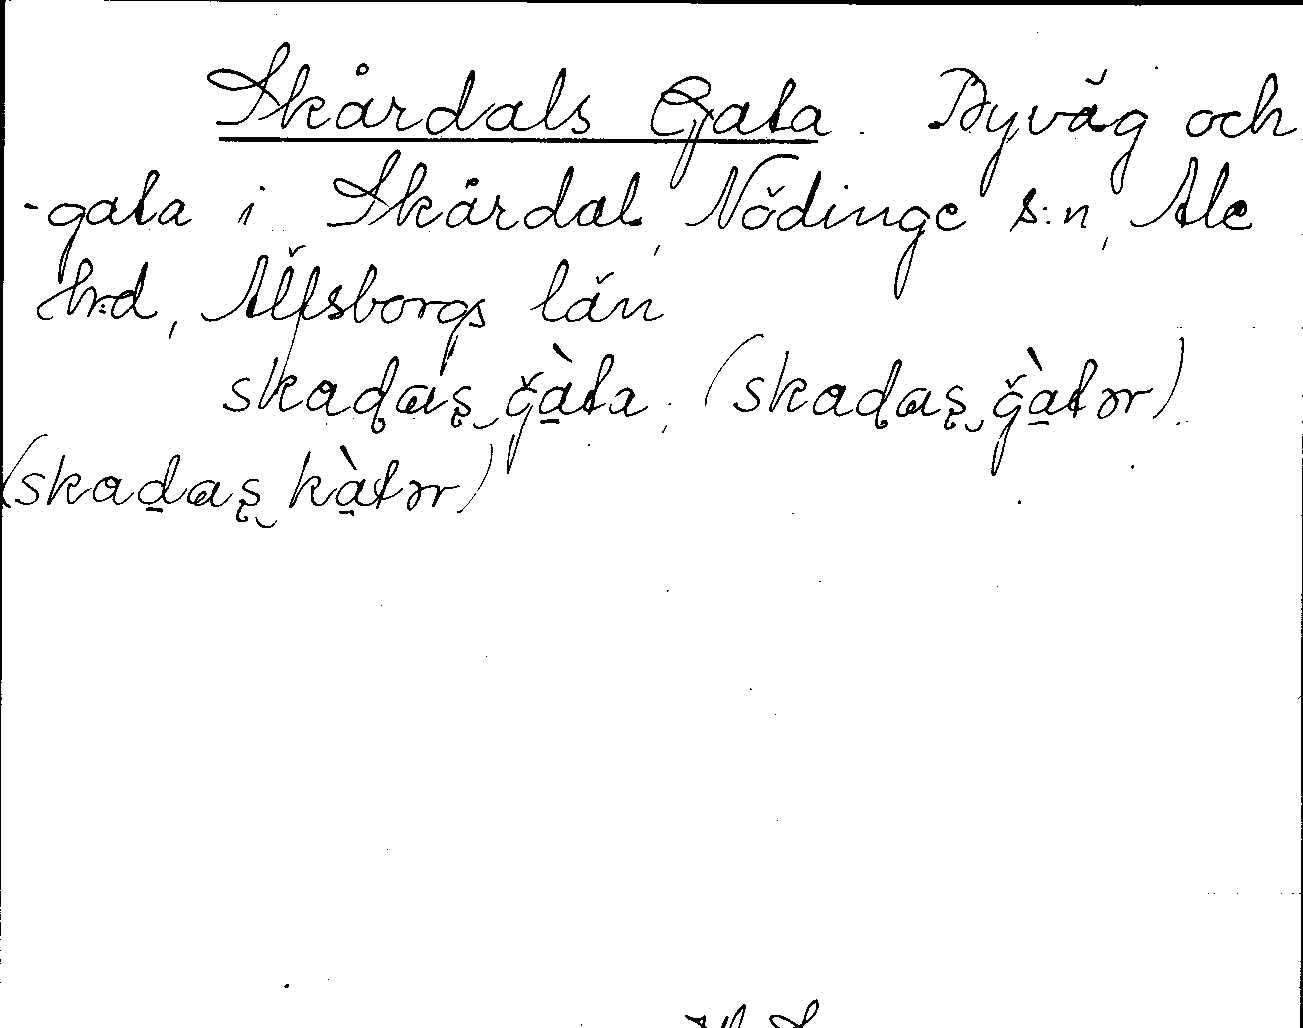 Skårdals Gata. Byväg och
-gata i Skårdal, Nödinge s:n, Ale
hrd, Älfsborgs län
skaḍaş‿ǧàta, (skaḍaş‿ǧàtər)
(skaḍaş‿kàtər)